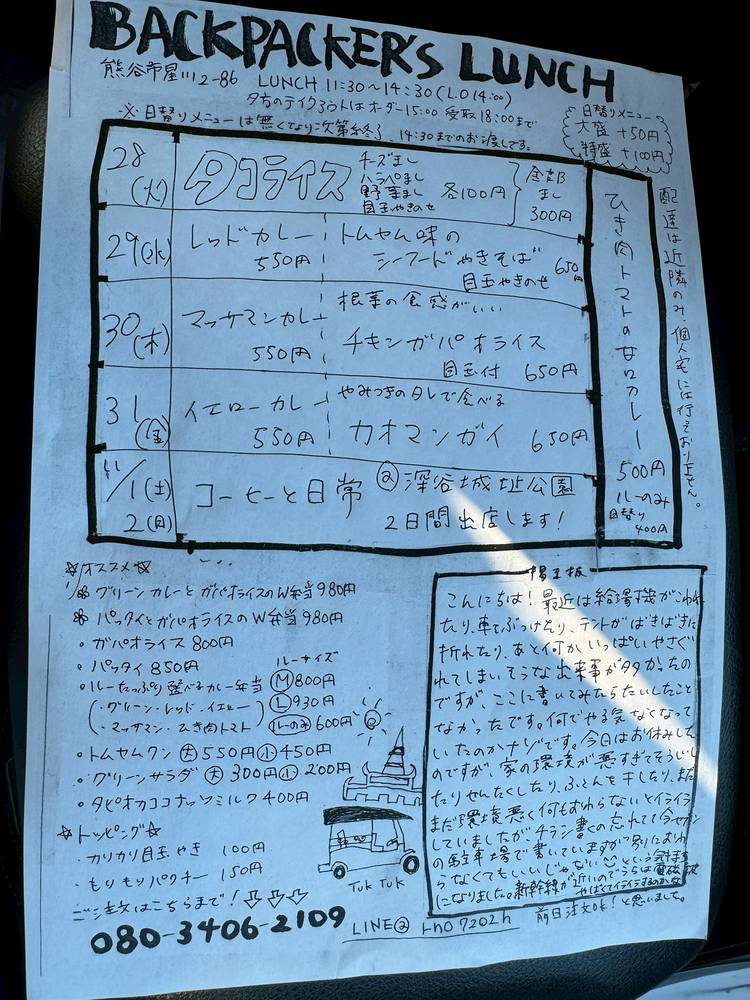 BACKPACKER'S LUNCH
熊谷市星川2-86 LUNCH 11:30〜14:30(L.O 14:00)
夕方のテイクアウトはオーダー15:00 受取18:00まで
※日替りメニューは無くなり次第終了、14:30までのお渡しです。
日替りメニュー
大盛 +50円
特盛 +100円
28(火) タコライス
チーズまし
ハラペまし
野菜まし
目玉やきのせ
各100円
全部まし300円
29(水) レッドカレー 550円
トムヤム味の
シーフードやきそば
目玉やきのせ 650円
30(木) マッサマンカレー 550円
根菜の食感がいい
チキンガパオライス
目玉付 650円
31(金) イエローカレー 550円
やみつきのタレで食べる
カオマンガイ 650円
11/1(土)
2(日)
コーヒーと日常 @深谷城址公園
2日間出店します!
ひき肉トマトの甘口カレー
500円
ルーのみ
日替り
400円
配達は近隣のみ、個人宅には行っておりません。
☆オススメ☆
グリーンカレーとガパオライスのW弁当 980円
パッタイとガパオライスのW弁当 980円
・ガパオライス 800円
・パッタイ 850円
・ルーたっぷり選べるカレー弁当
(・グリーン・レッド・イエロー
・マッサマン・ひき肉トマト)
ルーサイズ
M 800円
L 930円
ルーのみ 600円
・トムヤムクン 大 550円 小 450円
・グリーンサラダ 大 300円 小 200円
・タピオカココナッツミルク 400円
☆トッピング☆
・カリカリ目玉やき 100円
・もりもりパクチー 150円
ご注文はこちらまで!⇩⇩⇩
080-3406-2109
LINE@
前日注文OK!
Tuk Tuk
掲示板
こんにちは!最近は給湯機がこわれ
たり、車でぶつけたり、テントがばきばきに
折れたり、あと何かいっぱいやさぐ
れてしまいそうな出来事が多かったの
ですが、ここに書いてみたらたいしたこと
なかったです。何でやる気なくなって
いたのかナゾです。今日はお休みした
のですが、家の環境が悪すぎてそうじし
たりせんたくしたり、ふとんを干したり、まだ
まだ環境悪く何もおわらないとイライラ
していましたがチラシ書くの忘れて今セブン
の駐車場で書いていますが別におわ
らなくてもいいじゃない という気持ち
になりました。新幹線が近いのでうちは電磁波
やばくてイライラするのかな
と思いました。